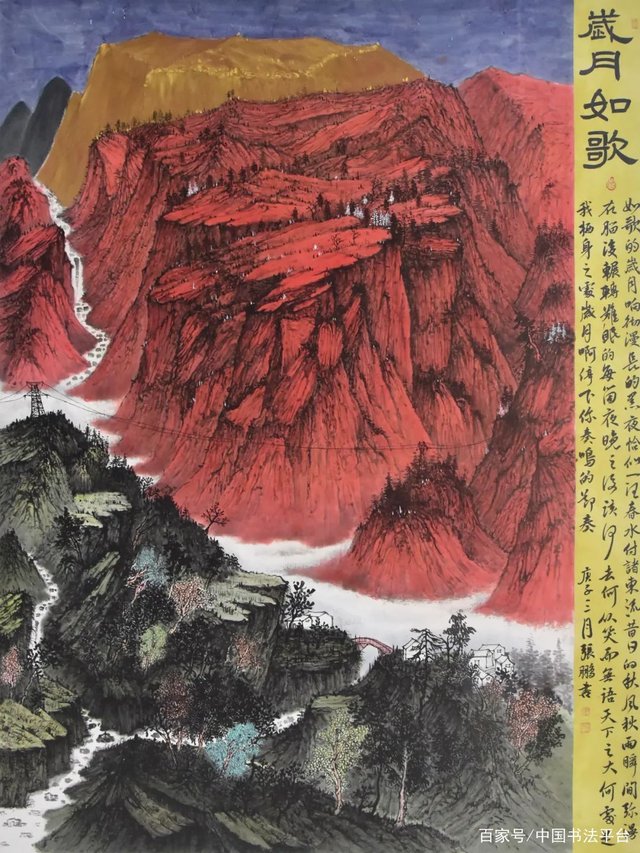 歲月如歌
如歌的歲月响彻漫長的黑夜恰似一江春水付諸東流昔日的秋風秋雨瞬間弥漫
在脑後輾轉難眠的每當夜晚之後該何去何从笑而無語天下之大何處是
我栖身之處歲月啊停下你奏鳴的節奏 庚子三月張鵬書
百家号/中国书法平台